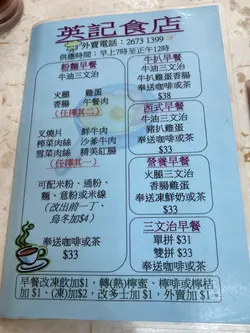 英記食店
外賣電話：2673 1399
供應時間：早上7時至正午12時
粉麵早餐
牛油三文治
火腿 雞蛋
香腸 午餐肉
(任擇二)
叉燒片 鮮牛肉
榨菜肉絲 沙爹牛肉
雪菜肉絲 精美紅腸
(任擇其一)
可配米粉、通粉、
麵、意粉或米線
(改出前一丁、
烏冬加$4)
奉送咖啡或茶
$33
牛扒早餐
牛油三文治
牛扒雞蛋香腸
奉送咖啡或茶
$38
西式早餐
牛油三文治
豬扒雞蛋
奉送咖啡或茶
$33
營養早餐
火腿三文治
香腸雞蛋
奉送凍鮮奶或茶
$33
三文治早餐
單拼 $31
雙拼 $33
奉送咖啡或茶
早餐改凍飲加$1、轉(熱)檸蜜、檸啡或檸桔
加 $1、(凍)加$2、改多士加 $1、外賣加 $1。